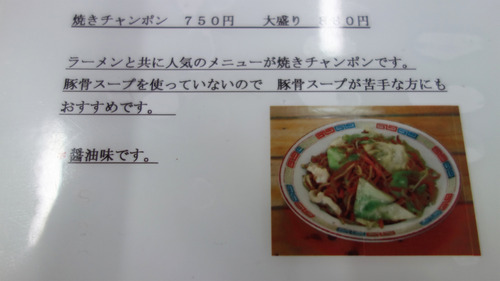 焼きチャンポン　７５０円　　大盛り　　円
ラーメンと共に人気のメニューが焼きチャンポンです。
豚骨スープを使っていないので　豚骨スープが苦手な方にも
おすすめです。
醤油味です。